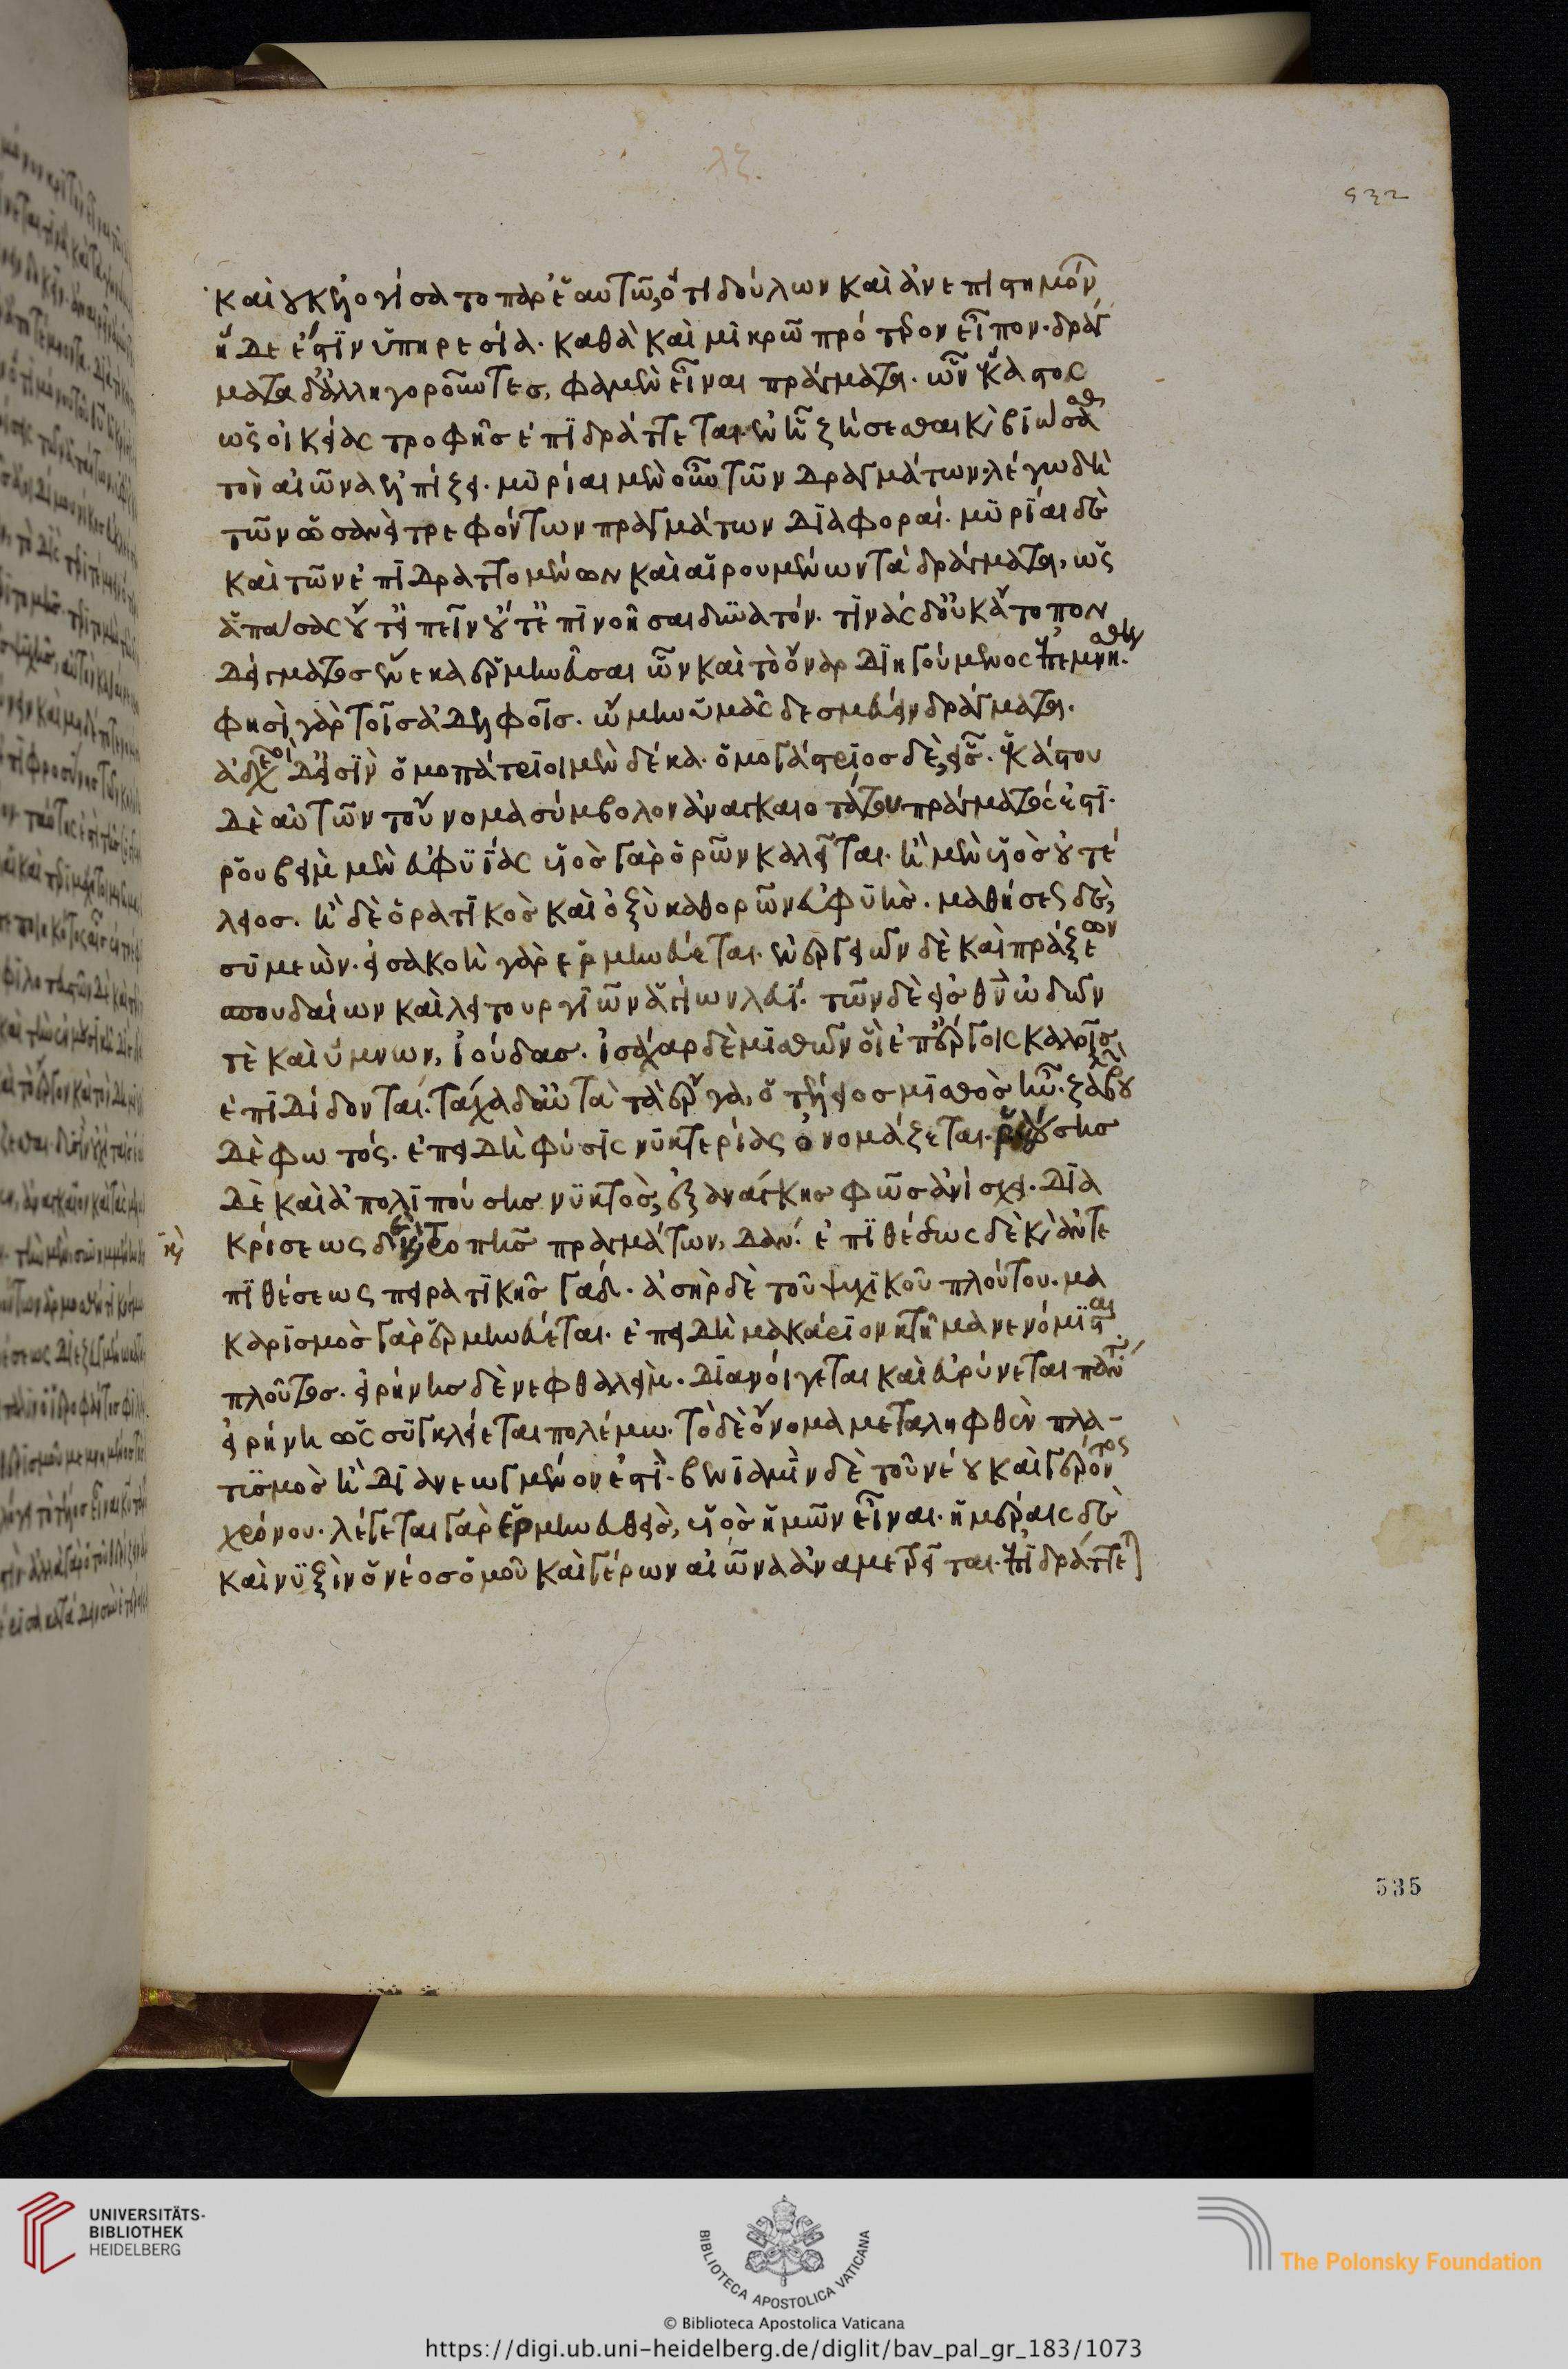 καὶ οὐκ ἐλογίσατο παρ' ἑαυτῷ, ὅτι δούλων καὶ ἀνεπιστημόν
ἥδε ἐστὶν ὑπηρεσία. καθὰ καὶ μικρῷ πρότερον εἶπον. δράγ
ματα δ' ἀλληγοροῦντες, φαμὲν εἶναι πράγματα. ὧν ἕκαστος
ὡς οἰκείας τροφῆς ἐπιδράττεται. ἐν ᾗ ζήσεσθαι καὶ βιώσασθαι
τὸν αἰῶνα ἐλπίζει. μυρίαι μὲν οὖν τῶν δραγμάτων. λέγω δὴ
τῶν ὡσανεὶ τρεφόντων πραγμάτων διαφοραί. μυρίαι δὲ
καὶ τῶν ἐπιδραττομένων καὶ αἱρουμένων τὰ δράγματα, ὡς
ἁπάσας οὔτ' εἰπεῖν οὔτ' ἐπινοῆσαι δυνατόν. τινὰς δ' οὐκ ἄτοπον
δείγματος ἕνεκα ἑρμηνεῦσαι ὧν καὶ τὸ ὄναρ διηγούμενος ἐπεμνήσθη.
φησὶ γὰρ τοῖς ἀδελφοῖς. ᾤμην ὑμᾶς δεσμεύειν δράγματα.
ἀδελφοὶ δ' εἰσὶν ὁμοπάτριοι μὲν δέκα. ὁμογάστριος δὲ, εἷς. ἑκάστου
δὲ αὐτῶν τοὔνομα σύμβολον ἀναγκαιοτάτου πράγματός ἐστι.
ῥουβεὶμ μὲν εὐφυΐας υἱὸς γὰρ ὁρῶν καλεῖται. ᾗ μὲν υἱὸς οὐ τέ
λειος. ᾗ δὲ ὁρατικὸς καὶ ὀξὺ καθορῶν εὐφυής. μαθήσεως δὲ,
συμεών. εἰσακοὴ γὰρ ἑρμηνεύεται. ἐνεργειῶν δὲ καὶ πράξεων
σπουδαίων καὶ λειτουργιῶν ἁγίων λευΐ. τῶν δὲ εἰς θν ὠδῶν
τὲ καὶ ὕμνων, ἰούδας. ἰσάχαρ δὲ μισθῶν οἳ ἐπ' ἔργοις καλοῖς
ἐπιδίδονται. τάχα δ' αὐτὰ τὰ ἔργα, ὁ τέλειος μισθὸς ἦν. ζαβου
δὲ φωτός. ἐπειδὴ φύσις νυκτερίας ὀνομάζεται. ῥεούσης
δὲ καὶ ἀπολιπούσης νυκτὸς, ἐξ ἀνάγκης φῶς ἀνίσχει. δια
κρίσεως δὲ πραγμάτων, δάν. ἐπιθέσεως δὲ καὶ ἀντε
πιθέσεως πειρατικῆς γάδ. ἀσὴρ δὲ τοῦ ψυχικοῦ πλούτου. μα
καρισμὸς γὰρ ἑρμηνεύεται. ἐπειδὴ μακάριον κτῆμα νενόμισται
πλοῦτος. εἰρήνης δὲ νεφθαλείμ. διανοίγεται καὶ εὐρύνεται πάντ
εἰρήνῃ ὡς συγκλείεται πολέμῳ. τὸ δὲ ὄνομα μεταληφθὲν πλα-
τισμὸς ἢ διανεωγμένον ἐστὶ. βενϊαμὶν δὲ τοῦ νέου καὶ γέροντος
χρόνου. λέγεται γὰρ ἑρμηνευθεὶς, υἱὸς ἡμῶν εἶναι. ἡμέραις δὲ
καὶ νυξὶν ὁ νέος ὁμοῦ καὶ γέρων αἰῶνα ἀναμετρεῖται. ἐπιδράττε
535
UNIVERSITÄTS-
BIBLIOTHEK
HEIDELBERG
BIBLIOTECA APOSTOLICA VATICANA
The Polonsky Foundation
© Biblioteca Apostolica Vaticana
https://digi.ub.uni-heidelberg.de/diglit/bav_pal_gr_183/1073